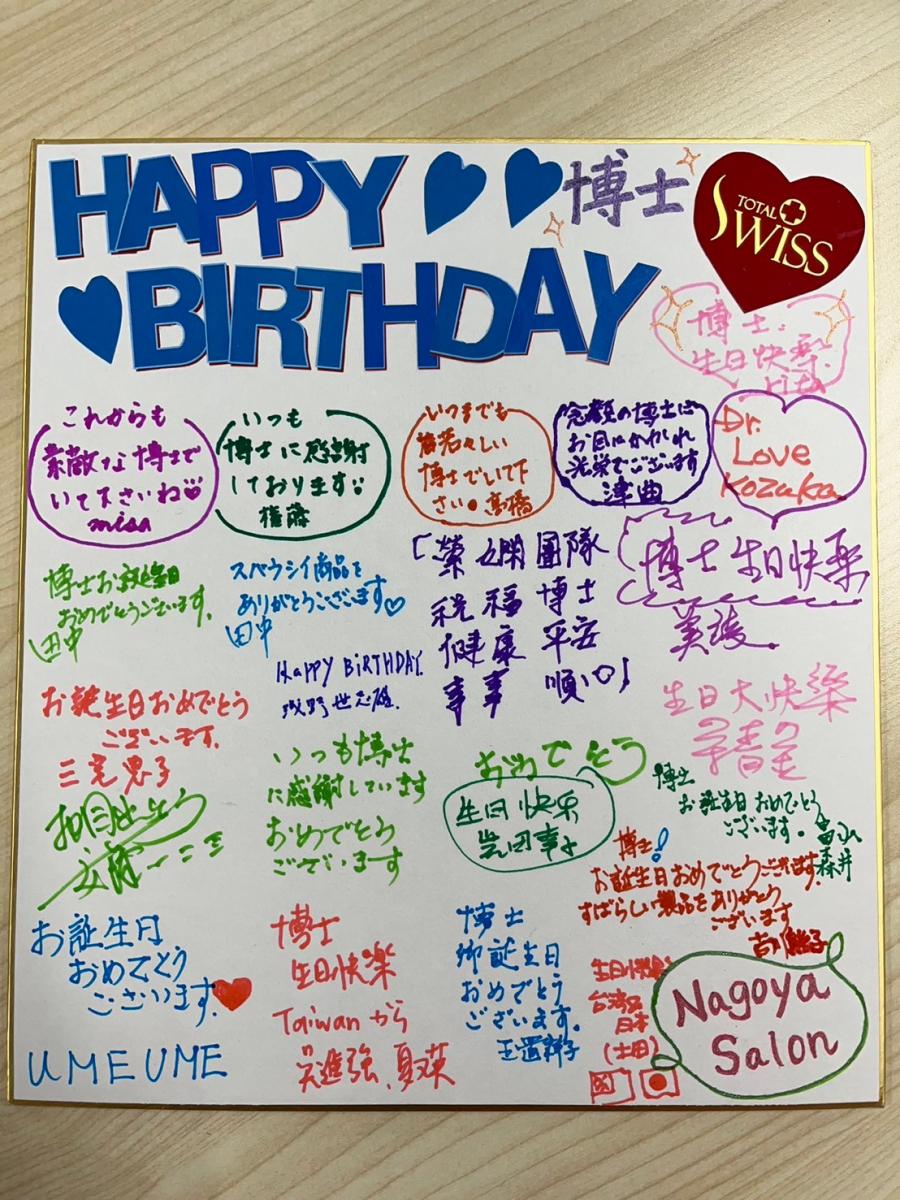 HAPPY
博士
TOTAL
SWISS
BIRTHDAY
博士.
生日快樂
rita
これからも
素敵な博士で
いて下さいね
misa
いつも
博士に感謝
しております
いつまでも
若々しい
博士でいて下
さい 高橋
念願の博士に
お目にかかれ
光栄でございます
津曲
Dr.
Love
Kozuka
博士お誕生日
おめでとうございます。
田中
スペウシイ商品を
ありがとうございます
田中
「榮 団隊
祝福 博士
健康 平安
事事 順心」
博士 生日快楽
HAPPY BIRTHDAY.
お誕生日おめでとう
ございます。
いつも博士
に感謝しています
おめでとう
ございます
おめでとう
生日快乐
生日大快樂
博士
お誕生日おめでとう
ございます。
森井
博士!
お誕生日おめでとうございます。
すばらしい製品をありがとう
ございます
お誕生日
おめでとう
ございます。
UME UME
博士
生日快樂
Taiwanから
吳進強、夏菜
博士
御誕生日
おめでとう
ございます。
生日快樂
台湾
日本
(土田)
Nagoya
Salon